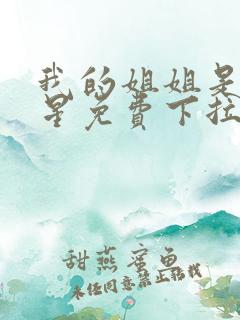 我的姐姐是
星免费下拉
甜燕蜜鱼
未经同意禁止转载